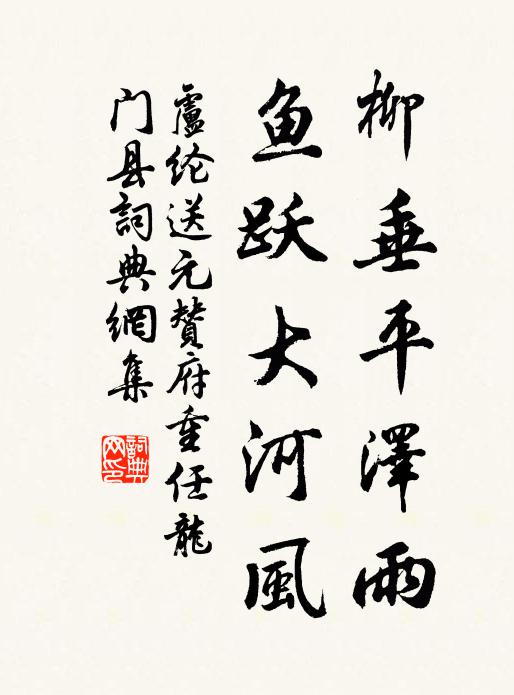 柳垂平澤雨
鱼跃大河風
盧纶送元贊府重任龍
门县詞典網集
詞典网印